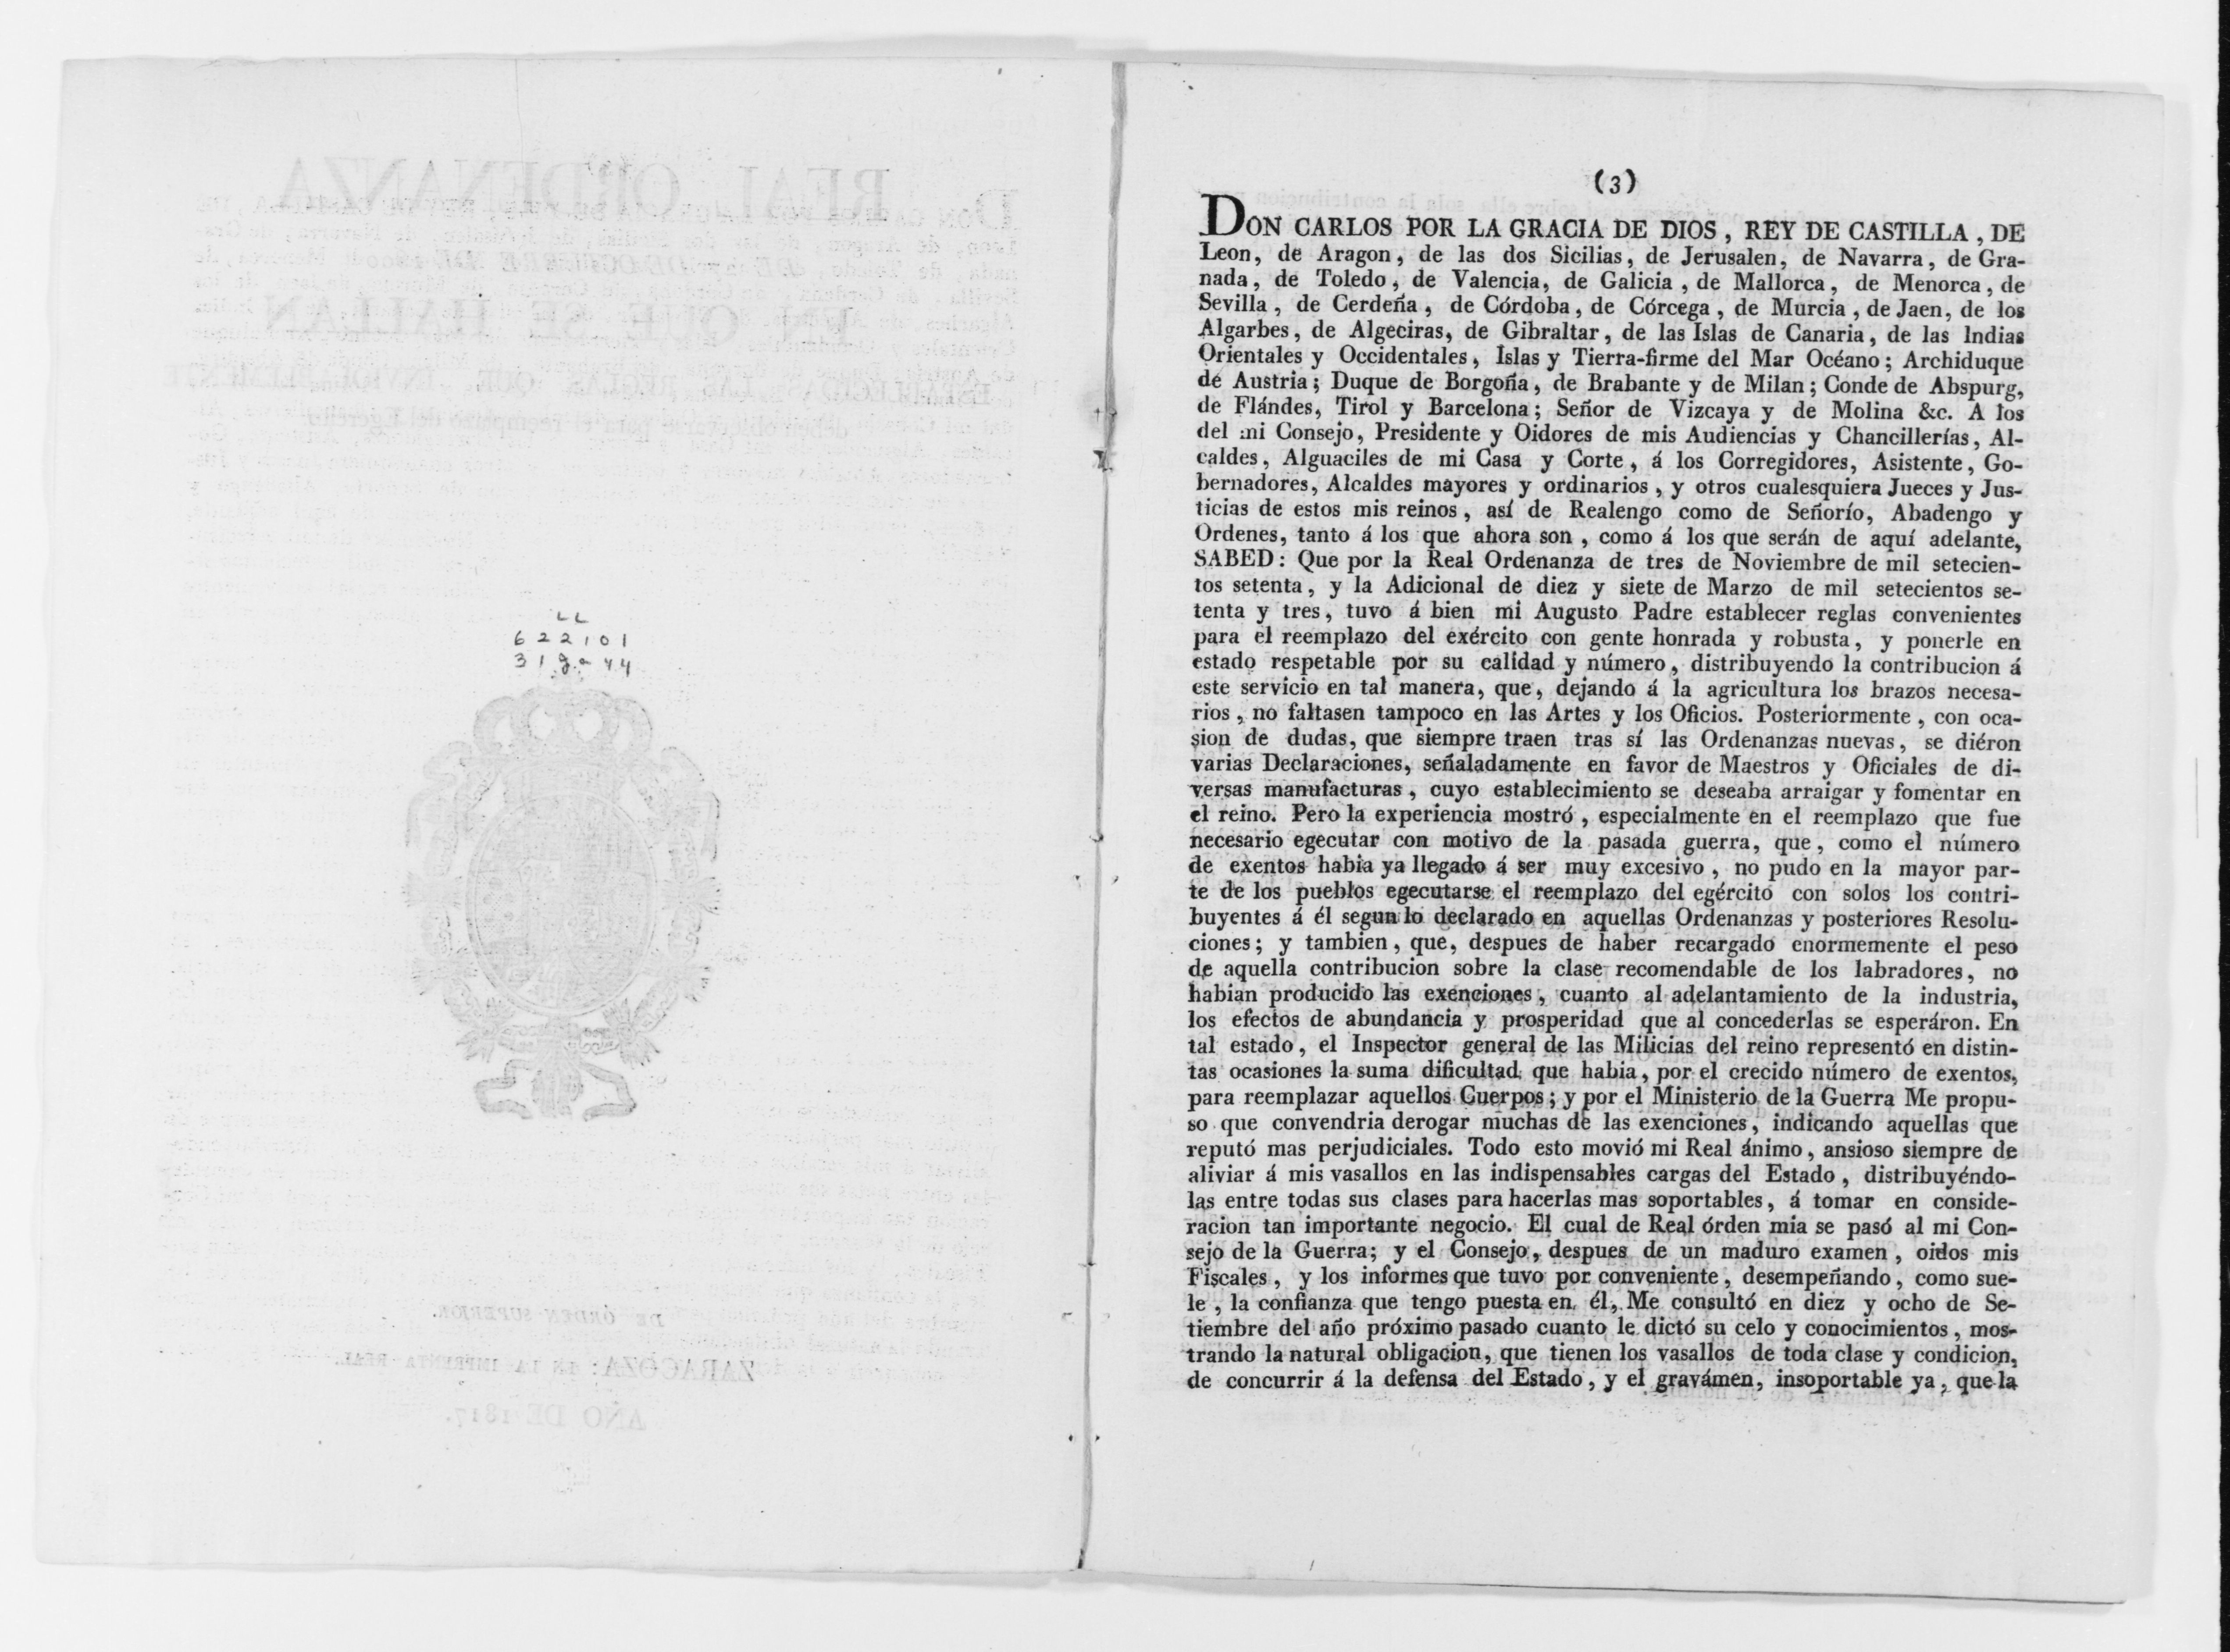 LL
622101
31 ga 44
(3)
DON CARLOS POR LA GRACIA DE DIOS, REY DE CASTILLA, DE
Leon, de Aragon, de las dos Sicilias, de Jerusalen, de Navarra, de Gra-
nada, de Toledo, de Valencia, de Galicia, de Mallorca, de Menorca, de
Sevilla, de Cerdeña, de Córdoba, de Córcega, de Murcia, de Jaen, de los
Algarbes, de Algeciras, de Gibraltar, de las Islas de Canaria, de las Indias
Orientales y Occidentales, Islas y Tierra-firme del Mar Océano; Archiduque
de Austria; Duque de Borgoña, de Brabante y de Milan; Conde de Abspurg,
de Flándes, Tirol y Barcelona; Señor de Vizcaya y de Molina &c. A los
del mi Consejo, Presidente y Oidores de mis Audiencias y Chancillerías, Al-
caldes, Alguaciles de mi Casa y Corte, á los Corregidores, Asistente, Go-
bernadores, Alcaldes mayores y ordinarios, y otros cualesquiera Jueces y Jus-
ticias de estos mis reinos, así de Realengo como de Señorío, Abadengo y
Ordenes, tanto á los que ahora son, como á los que serán de aquí adelante,
SABED: Que por la Real Ordenanza de tres de Noviembre de mil setecien-
tos setenta, y la Adicional de diez y siete de Marzo de mil setecientos se-
tenta y tres, tuvo á bien mi Augusto Padre establecer reglas convenientes
para el reemplazo del exército con gente honrada y robusta, y ponerle en
estado respetable por su calidad y número, distribuyendo la contribucion á
este servicio en tal manera, que, dejando á la agricultura los brazos necesa-
rios, no faltasen tampoco en las Artes y los Oficios. Posteriormente, con oca-
sion de dudas, que siempre traen tras sí las Ordenanzas nuevas, se diéron
varias Declaraciones, señaladamente en favor de Maestros y Oficiales de di-
versas manufacturas, cuyo establecimiento se deseaba arraigar y fomentar en
el reino. Pero la experiencia mostró, especialmente en el reemplazo que fue
necesario egecutar con motivo de la pasada guerra, que, como el número
de exentos habia ya llegado á ser muy excesivo, no pudo en la mayor par-
te de los pueblos egecutarse el reemplazo del egército con solos los contri-
buyentes á él segun lo declarado en aquellas Ordenanzas y posteriores Resolu-
ciones; y tambien, que, despues de haber recargado enormemente el peso
de aquella contribucion sobre la clase recomendable de los labradores, no
habian producido las exenciones, cuanto al adelantamiento de la industria,
los efectos de abundancia y prosperidad que al concederlas se esperáron. En
tal estado, el Inspector general de las Milicias del reino representó en distin-
tas ocasiones la suma dificultad que habia, por el crecido número de exentos,
para reemplazar aquellos Cuerpos; y por el Ministerio de la Guerra Me propu-
so que convendria derogar muchas de las exenciones, indicando aquellas que
reputó mas perjudiciales. Todo esto movió mi Real ánimo, ansioso siempre de
aliviar á mis vasallos en las indispensables cargas del Estado, distribuyéndo-
las entre todas sus clases para hacerlas mas soportables, á tomar en conside-
racion tan importante negocio. El cual de Real órden mia se pasó al mi Con-
sejo de la Guerra; y el Consejo, despues de un maduro examen, oidos mis
Fiscales, y los informes que tuvo por conveniente, desempeñando, como sue-
le, la confianza que tengo puesta en él, Me consultó en diez y ocho de Se-
tiembre del año próximo pasado cuanto le dictó su celo y conocimientos, mos-
trando la natural obligacion, que tienen los vasallos de toda clase y condicion,
de concurrir á la defensa del Estado, y el gravámen, insoportable ya, que la